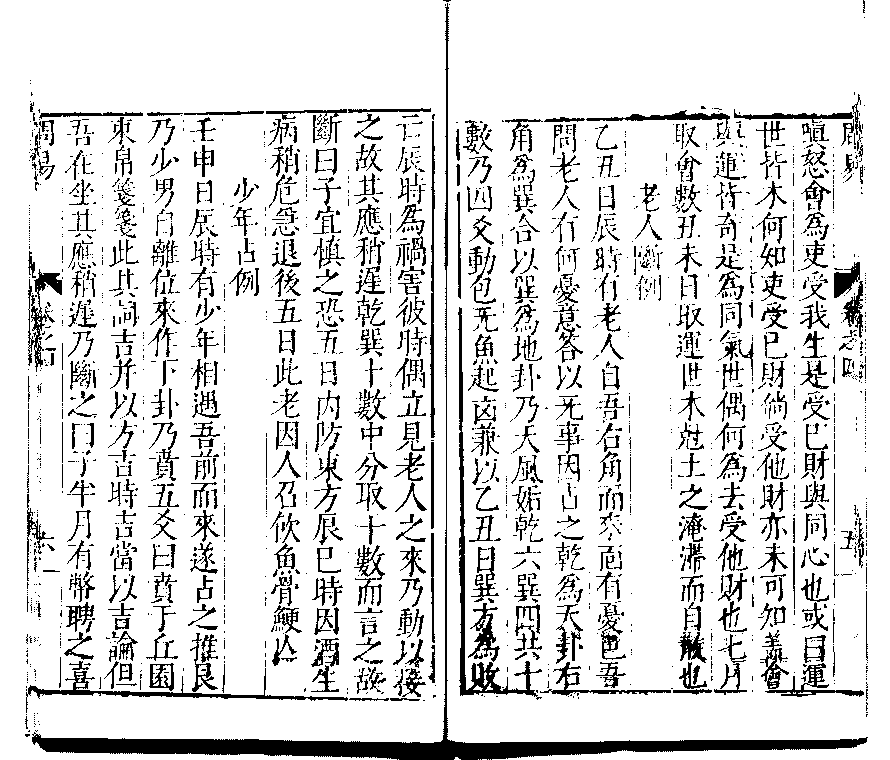 周易
卷之四
五
嗔怒會為吏受我生是受已財與同心也或曰運
世皆木何知吏受已財倘受他財亦未可知盖會
與運皆奇是為同氣世偶何為去受他財也七月
取會數丑未日取運世木尅土之淹滯而自散也
老人斷例
乙丑日辰時有老人自吾右角而來面有憂色吾
問老人有何憂意答以无事因占之乾為天卦右
角為巽合以巽為地卦乃天風姤乾六巽四共十
數乃四爻動包无魚起凶兼以乙丑日巽方為敗
亡辰時為禍害彼時偶立見老人之來乃動以接
之故其應稍遲乾巽十數中分取十數而言之故
斷曰子宜慎之恐五日內防東方辰巳時因酒生
病稍危急退後五日此老因人召飲魚骨鯁亾
少年占例
壬申日辰時有少年相遇吾前而來遂占之推艮
乃少男自離位來作下卦乃賁五爻曰賁于丘園
束帛箋箋此其詞吉并以方吉時吉當以吉論但
吾在坐其應稍遲乃斷之曰子半月有幣聘之喜
周易
卷之四
六